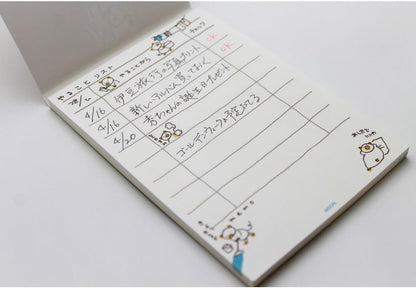 やることリスト
やることから
チェック
4/16 伊豆旅行の写真プリント OK
4/16 新しいアルバム買っておく OK
4/20 杏ちゃんの誕生日プレゼント
ゴールデンウィークの予定たてる
memo